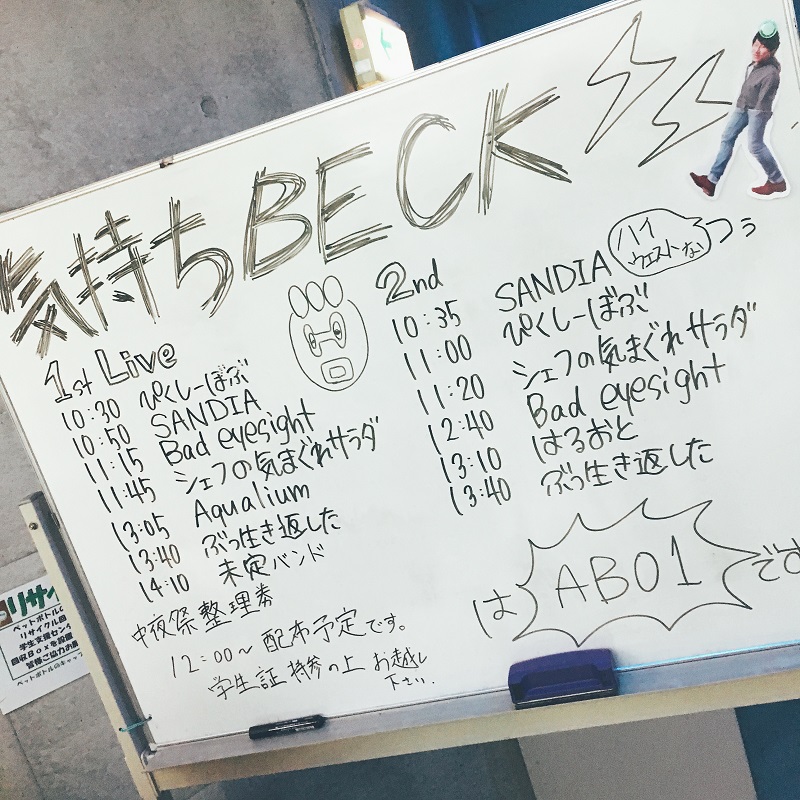 気持ちBECK
1st Live
10:30 ぴくしーぼぶ
10:50 SANDIA
11:15 Bad eyesight
11:45 シェフの気まぐれサラダ
13:05 Aqualium
13:40 ぶっ生き返した
14:10 未定バンド
中夜祭整理券
12:00〜 配布予定です。
学生証 持参の上 お越し
下さい.
2nd
10:35 SANDIA
ハイ
ウエストな
つぅ
11:00 ぴくしーぼぶ
11:20 シェフの気まぐれサラダ
12:40 Bad eyesight
13:10 はるおと
13:40 ぶっ生き返した
は AB01 です
リサイ
ペットボトルの
リサイクル回
学生支援セン
回収Boxを設置
皆様ご協力お願
ペットボトルのキャップ